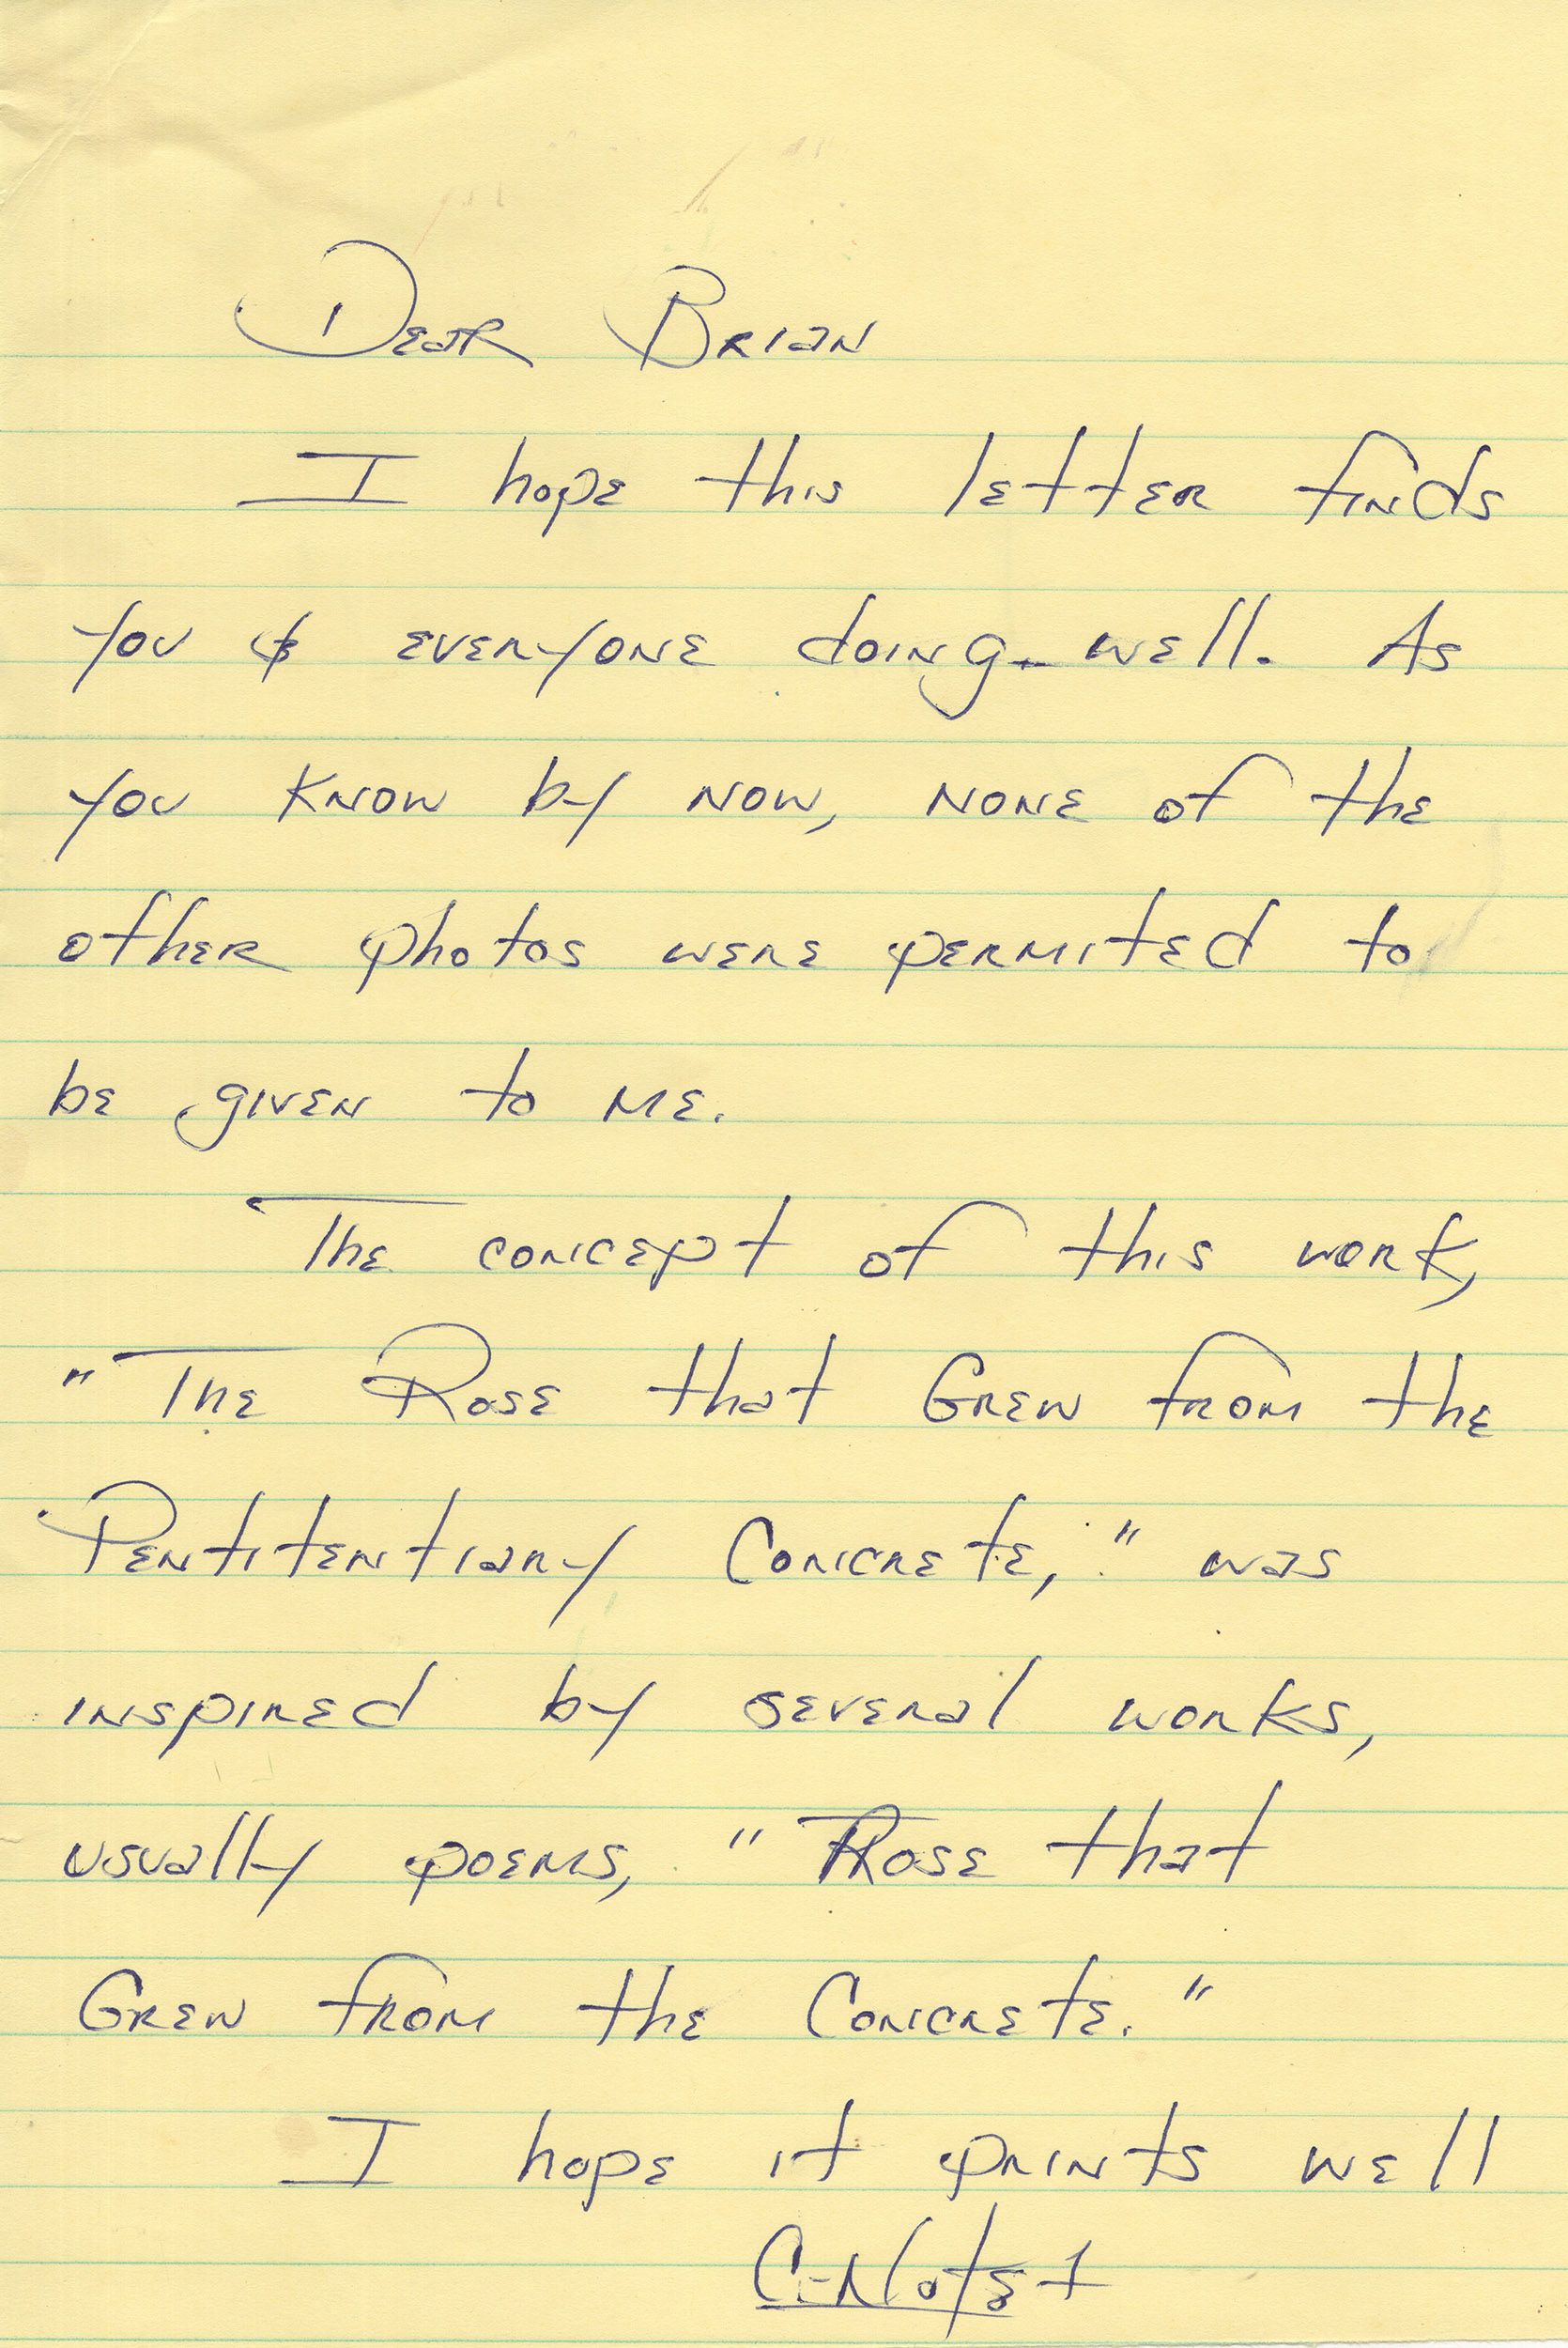 Dear Brian
I hope this letter finds
you & everyone doing well. As
you know by now, none of the
other photos were permited to
be given to me.
The concept of this work,
"The Rose that Grew from the
Pentitentiary Concrete," was
inspired by several works,
usually poems, "Rose that
Grew from the Concrete."
I hope it prints well
C-Note